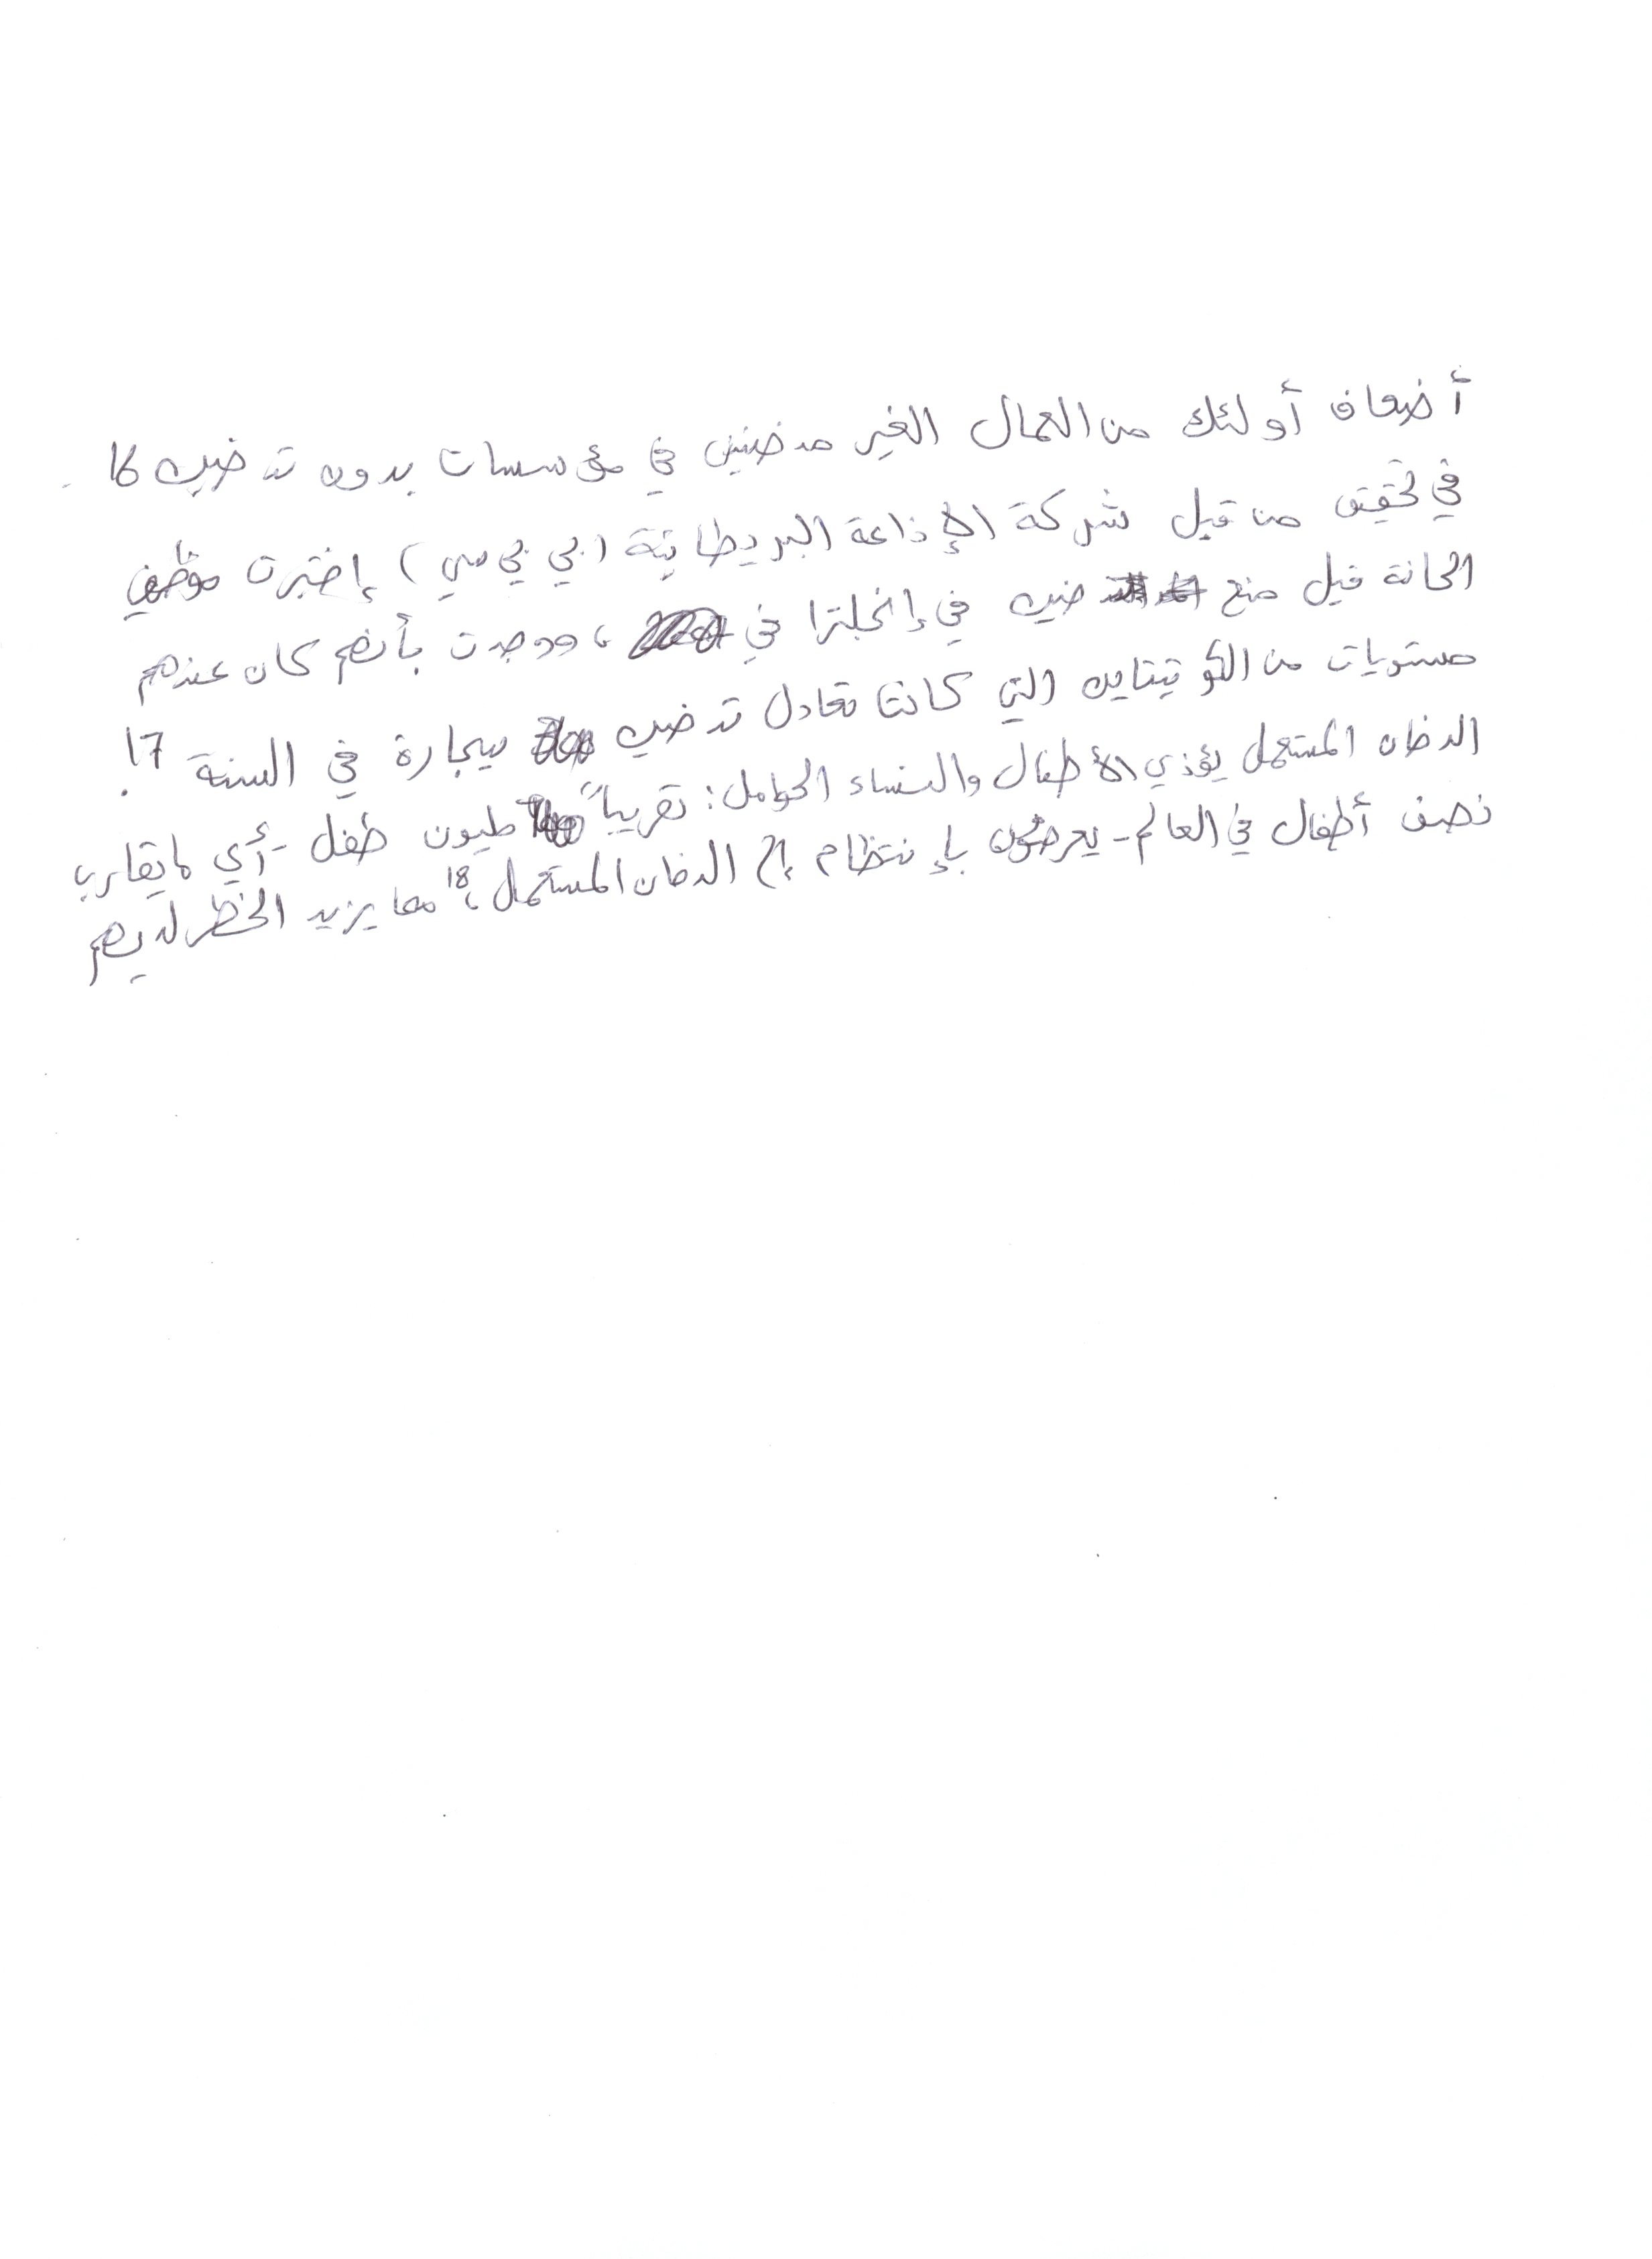 أضعاف أولئك من العمال الغير مدخنين في مؤسسات بدون تدخين كا
في تحقيق من قبل شركة الإذاعة البريطانية (بي بي سي) إختبرت موظفي
الحانة قبل منع خين في إنجلترا في ، ووجدت بأنهم كان عندهم
مستويات من الكوتيناين التي كانت تعادل تدخين سيجارة في السنة 17!
الدخان المستعمل يؤذي الأطفال والنساء الحوامل: تقريباً مليون طفل - أي ما يقارب
نصف أطفال في العالم - يعرضون بإنتظام إلى الدخان المستعمل،18 مما يزيد الخطر لديهم